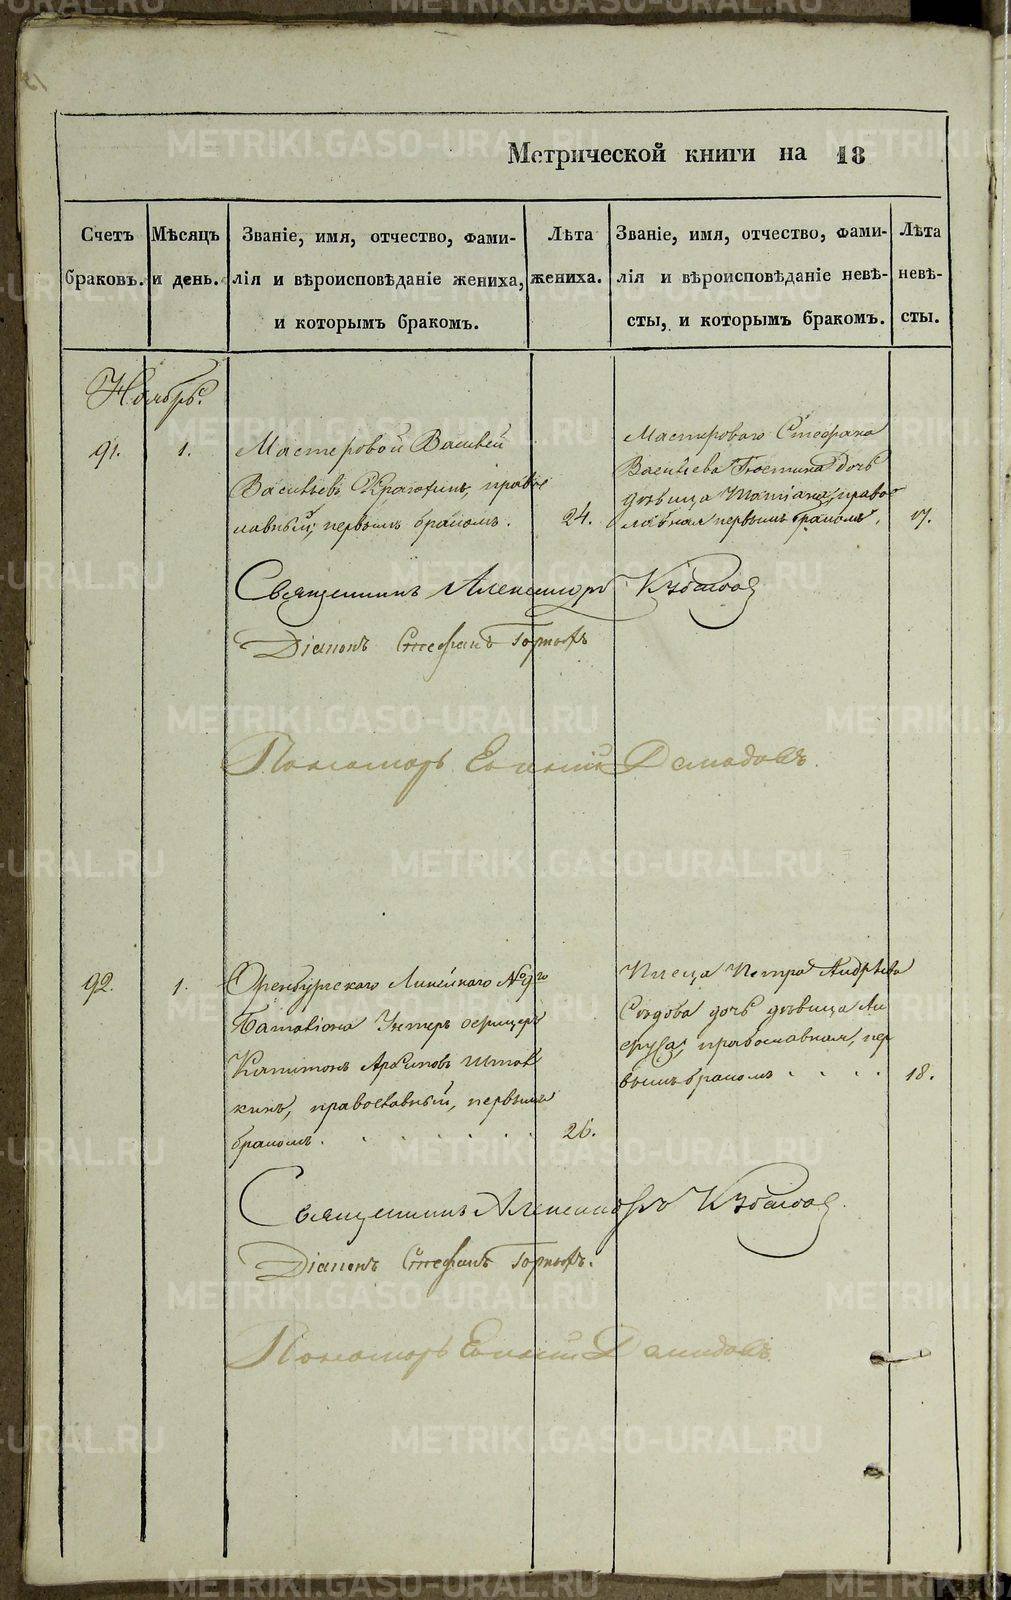 Метрической книги на 18
Счетъ браковъ.
Мѣсяцъ и день.
Званіе, имя, отчество, фами-
лія и вѣроисповѣданіе жениха,
и которымъ бракомъ.
Лѣта жениха.
Званіе, имя, отчество, фами-
лія и вѣроисповѣданіе невѣ-
сты, и которымъ бракомъ.
Лѣта невѣ-
сты.
Ноябрь.
91.
1.
Мастеровой Василей
Васильевъ православ
ный, первымъ бракомъ.
24.
Мастероваго Стефана
Васильева дочь
дѣвица Татiана, право
славная первымъ бракомъ.
17.
Священникъ Александръ
Дiаконъ Стефанъ
Пономарь Демидовъ.
92.
1.
Оренбургскаго Линейнаго № 9го
Баталiона Унтеръ офицеръ
Капитонъ
кинъ, православный, первымъ
бракомъ.
26.
Писца Петра Андрѣева
Сѣдова дочь дѣвица
православная, пер
вымъ бракомъ
18.
Священникъ Александръ
Дiаконъ Стефанъ
Пономарь Демидовъ.
METRIKI.GASO-URAL.RU